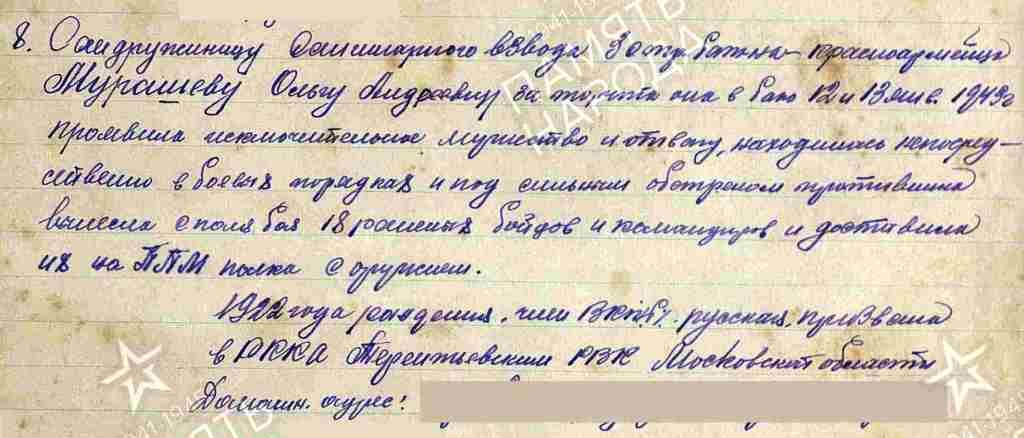 8. Сандружиницу санитарного взвода 3 стр. бат-на красноармейца
Мурашеву Ольгу Андреевну за то, что она в бою 12 и 13 янв. 1943г
проявила исключительное мужество и отвагу, находилась непосред-
ственно в боевых порядках и под сильным обстрелом противника
вынесла с поля боя 18 раненых бойцов и командиров и доставила
их на ППМ полка с оружием.
1922 года рождения, член ВКП(б), русская, призвана
в РККА РВК Московской области
Домашн. адрес:
ПАМЯТЬ
НАРОДА